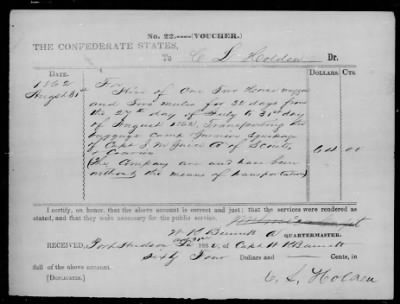 No. 22.----(VOUCHER.)
THE CONFEDERATE STATES,
To C L Holden Dr.
DATE. DOLLARS. CTS.
1862 For
August 31st Hire of One Two Horse wagon
and Two mules for 32 days from
the 27th day of July to 31st day
of August 1862, Transporting the
baggage Camp Garrison Equipage
of Capt J. W of Scouts
(The Company are and have been
without the means of transportation) 64 00
I certify, on honor, that the above account is correct and just; that the services were rendered as
stated, and that they were necessary for the public service.
W R Barnett A QUARTERMASTER.
RECEIVED, Port Hudson La 1862, of Capt W R Barnett
Sixty Four Dollars and —— Cents, in
full of the above account.
(DUPLICATES.) C. L. Holden